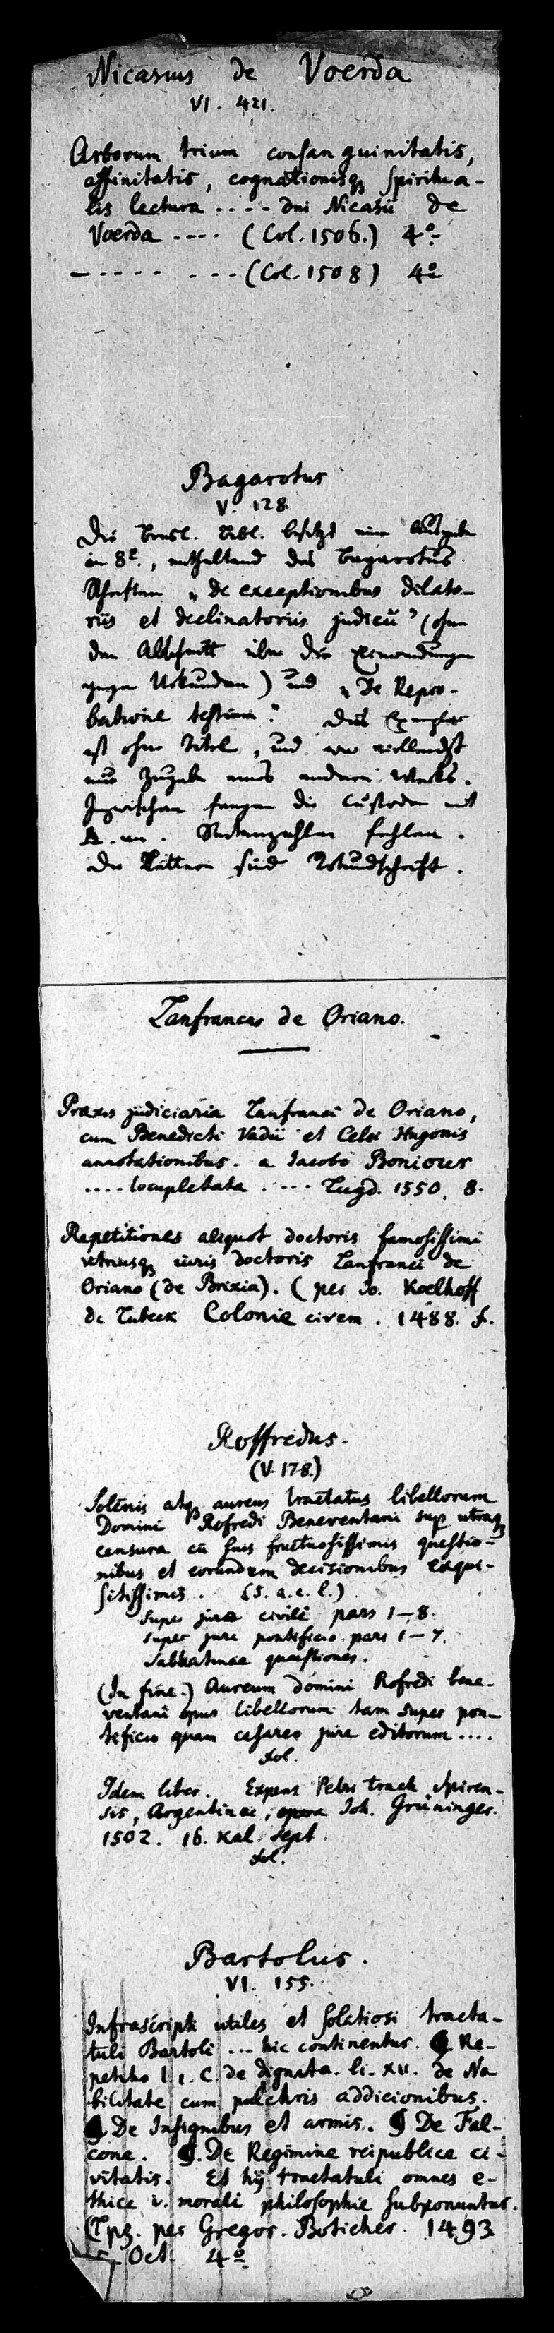 Nicasius de Voerda
VI. 421.
Arborum trium consanguinitatis,
affinitatis, cognationisq, spiritua-
lis lectura .... dni Nicasii de
Voerda .... (Col. 1506.) 4º
- - - - - - - - (Col. 1508) 4º
Bagarotus
V. 128.
Die Bresl. Bibl. besitzt eine Ausgabe
in 8º., enthaltend des Bagarotus
Schriften „de exceptionibus dilato-
riis et declinatoriis judicii" (ohne
den Abschnitt über die Einwendungen
gegen Urkunden) und „De Repro-
batione testium." Das Exemplar
ist ohne Titel, und war vielleicht
nur Zugabe eines andern Werks.
Inzwischen fangen die Custoden mit
A. an. Seitenzahlen fehlen.
Die Lettern sind Mönchsschrift.
Lanfrancus de Oriano.
Praxis judiciaria Lanfranci de Oriano,
cum Benedicti Vadii et Celsi Hugonis
annotationibus. a Jacobo
.... locupletata .... Lugd. 1550, 8.
Repetitiones aliquot doctoris famosissimi
utriusq, iuris doctoris Lanfranci de
Oriano (de Brixia). (per Jo. Koelhoff
de Lubeck Colonie civem. 1488. f.
Roffredus.
(V. 178.)
Solēnis atq, aureus tractatus libellorum
Domini Rofredi Beneventani sup utraq,
censura cū suis fructuosissimis questio-
nibus et eorundem decisionibus exqui-
sitissimis. (S. a. e. l.)
Super jure civili pars 1–8.
Super jure pontificio pars 1–7.
Sabbatinae quaestiones.
(In fine.) Aureum domini Rofredi bene-
ventani opus libellorum tam super pon-
tificio quam cesareo jure editorum ....
Fol.
Idem liber. Expens Petri trach Spiren-
sis, Argentinae, opera Joh. Grüninger.
1502. 16. kal. Sept.
Fol.
Bartolus.
VI. 155.
Infrascripti utiles et solatiosi tracta-
tuli Bartoli ... hic continentur. ¶ Re-
petitio l. 1. C. de dignita. li. XII. de No
bilitate cum pulchris addicionibus.
¶ De Insignibus et armis. ¶ De Fal-
cone. ¶. De Regimine reipublice ci-
vitatis. Et hij tractatuli omnes e-
thice v. morali philosophie supponuntur.
(Lpz. per Gregor. Boticher. 1493
Oct. 4º